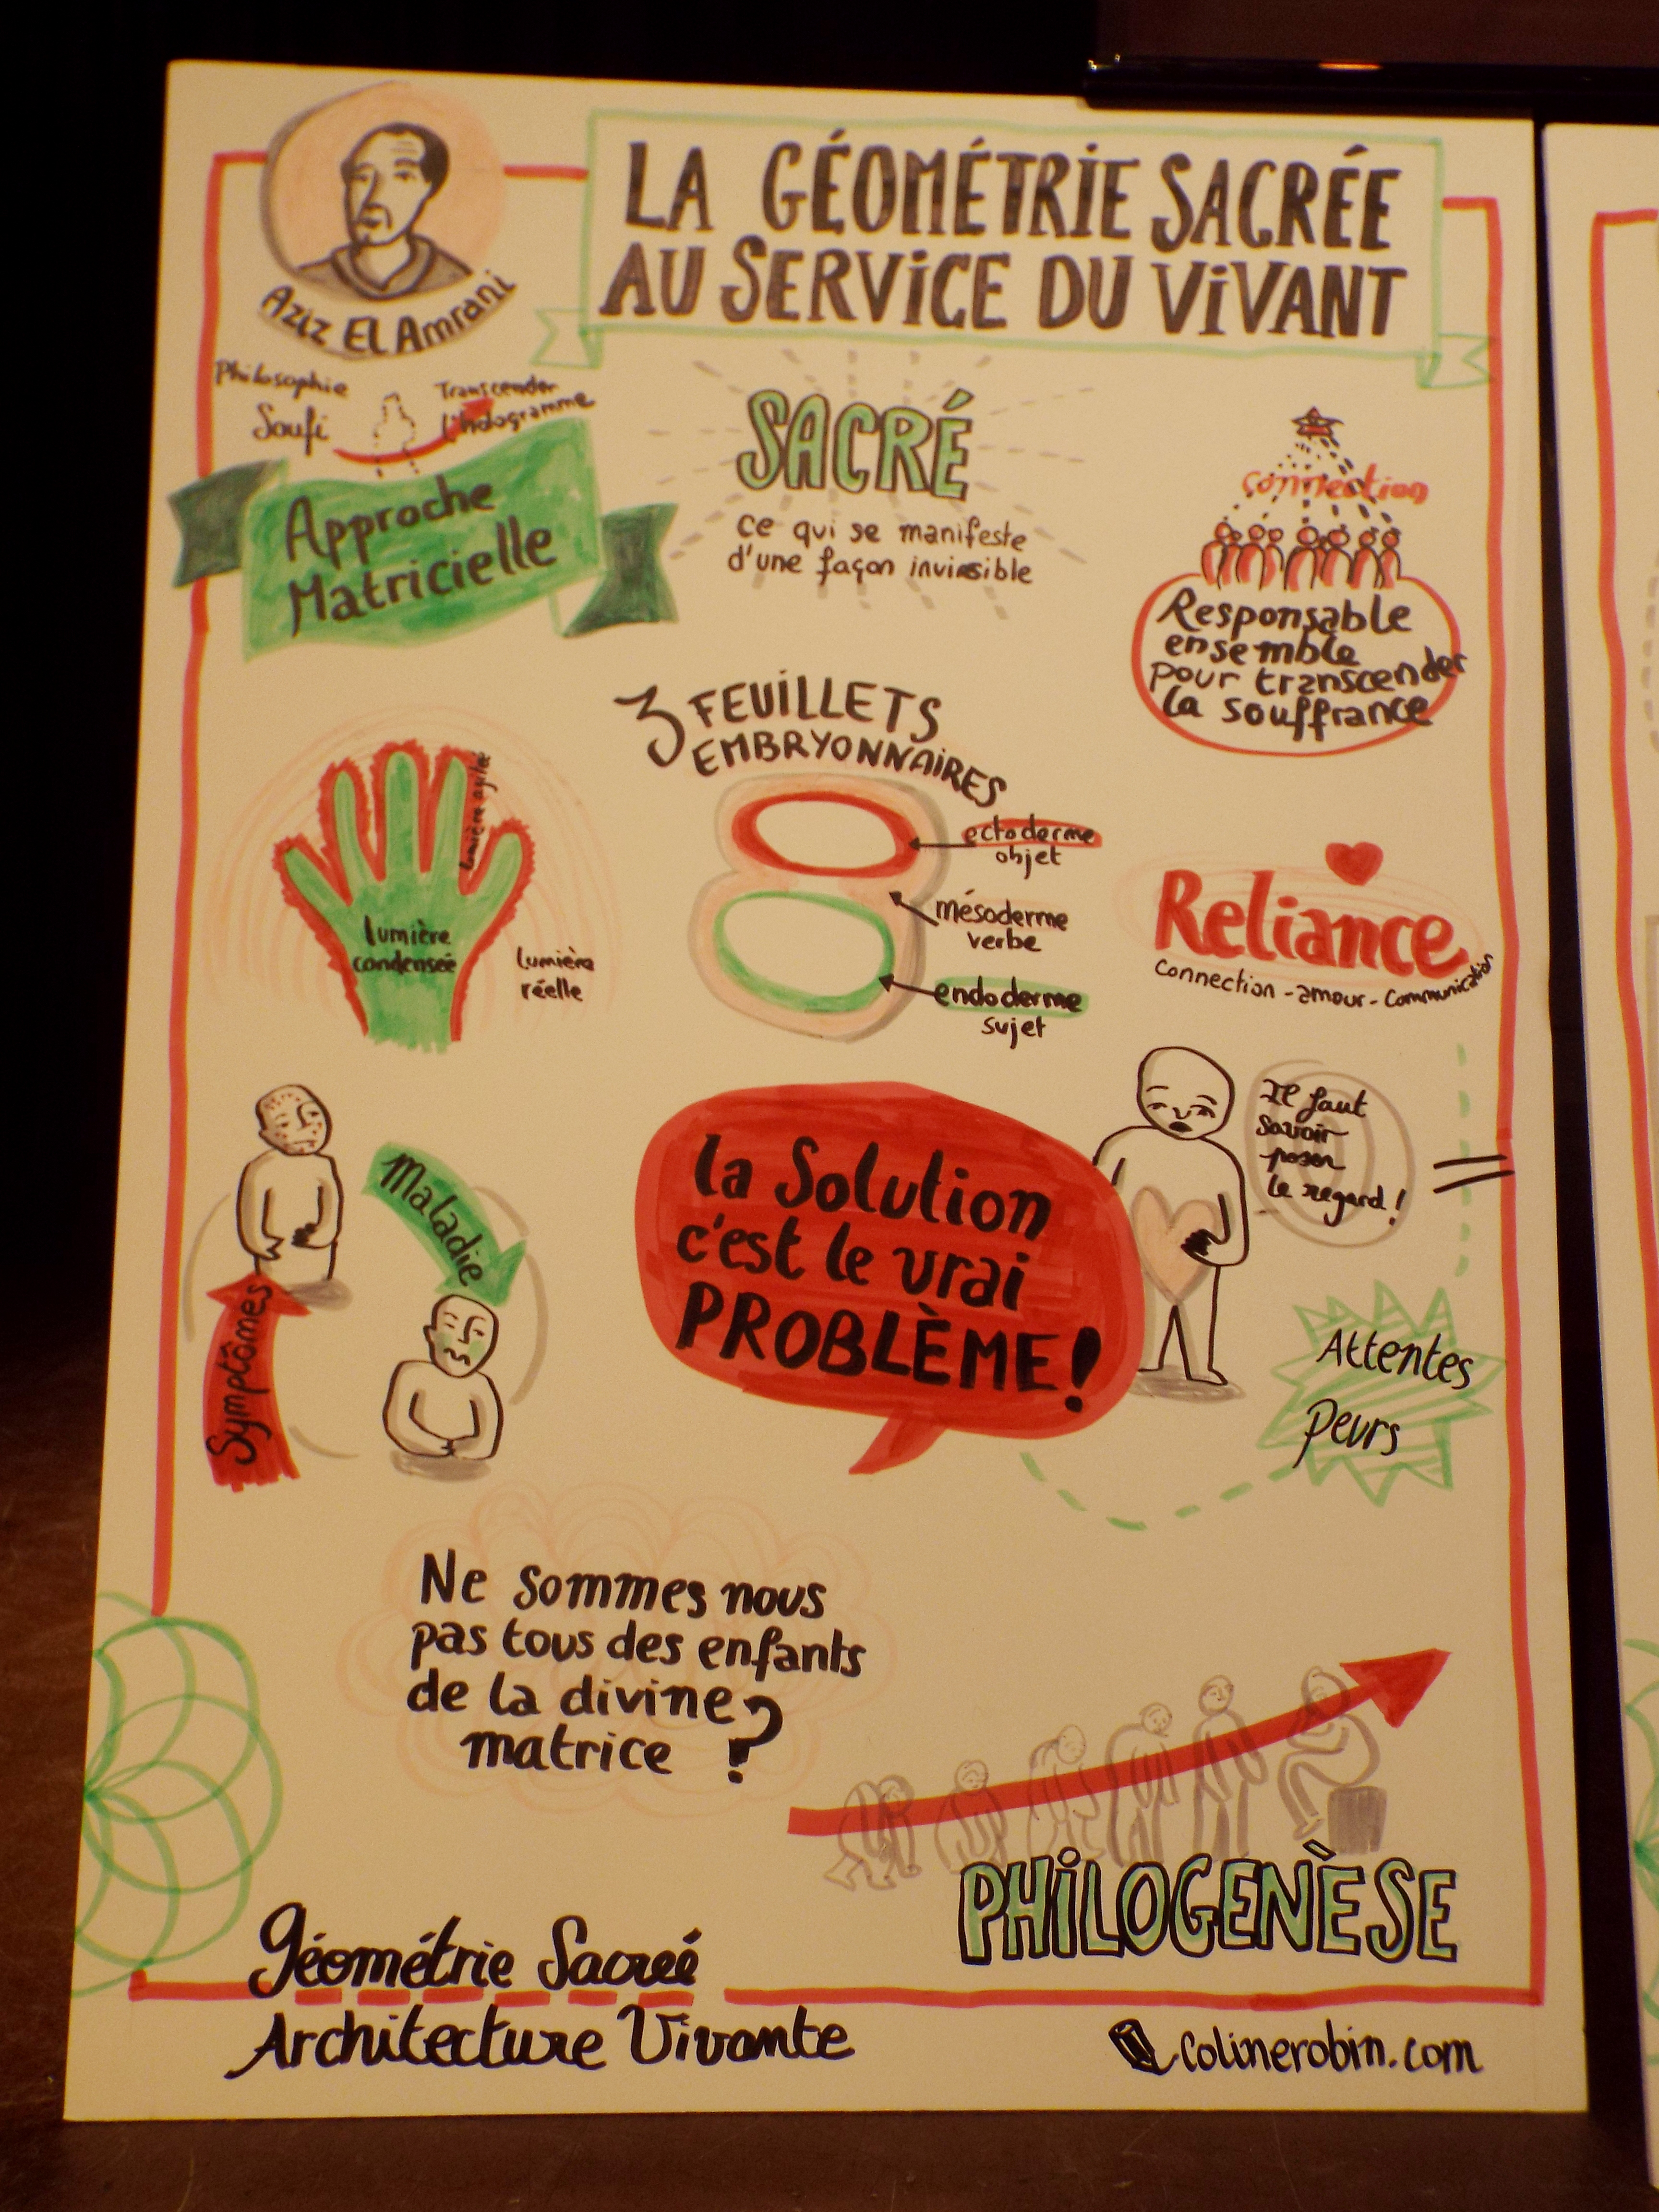 Aziz El Amrani
LA GÉOMÉTRIE SACRÉE
AU SERVICE DU VIVANT
Philosophie
Soufi
Transcender
l'hologramme
Approche
Matricielle
SACRÉ
ce qui se manifeste
d'une façon invisible
connection
Responsable
ensemble
pour transcender
la souffrance
3 FEUILLETS
EMBRYONNAIRES
ectoderme
objet
mésoderme
verbe
endoderme
sujet
lumière agitée
lumière
condensée
lumière
réelle
Reliance
connection - amour - communication
Maladie
Symptômes
la Solution
c'est le vrai
PROBLÈME!
Il faut
savoir
poser
le regard!
Attentes
Peurs
Ne sommes nous
pas tous des enfants
de la divine
matrice ?
PHILOGENÈSE
Géométrie Sacreé
Architecture Vivante
colinerobin.com